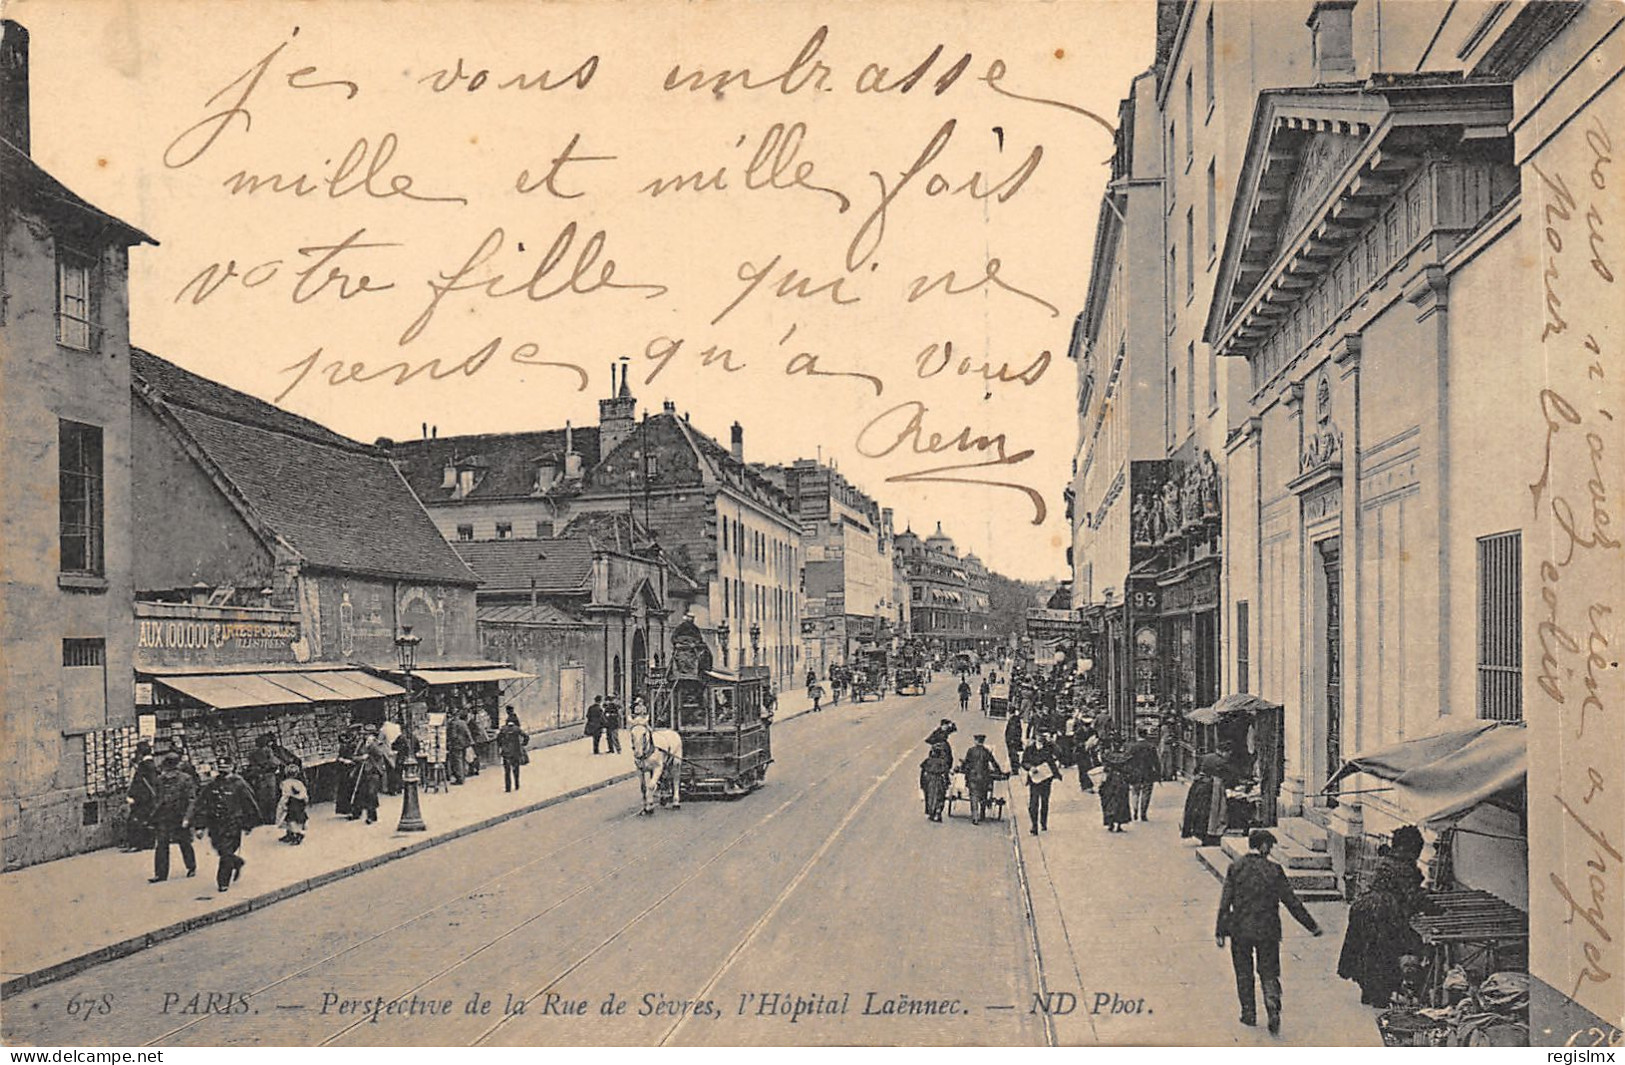 je vous embrasse
mille et mille fois
votre fille qui ne
pense qu'a vous
vous n'avez rien a payer
pour le colis
AUX 100.000 CARTES POSTALES
ILLUSTRÉES
93
678 PARIS. — Perspective de la Rue de Sèvres, l'Hôpital Laënnec. — ND Phot.
regislmx